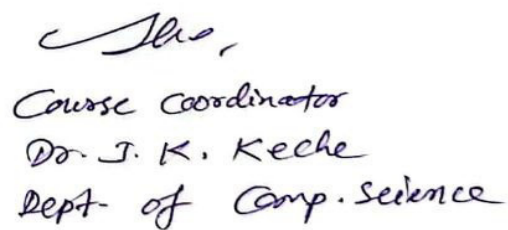 Course Coordinator
Dr. J. K. Keche
Dept. of Comp. Science